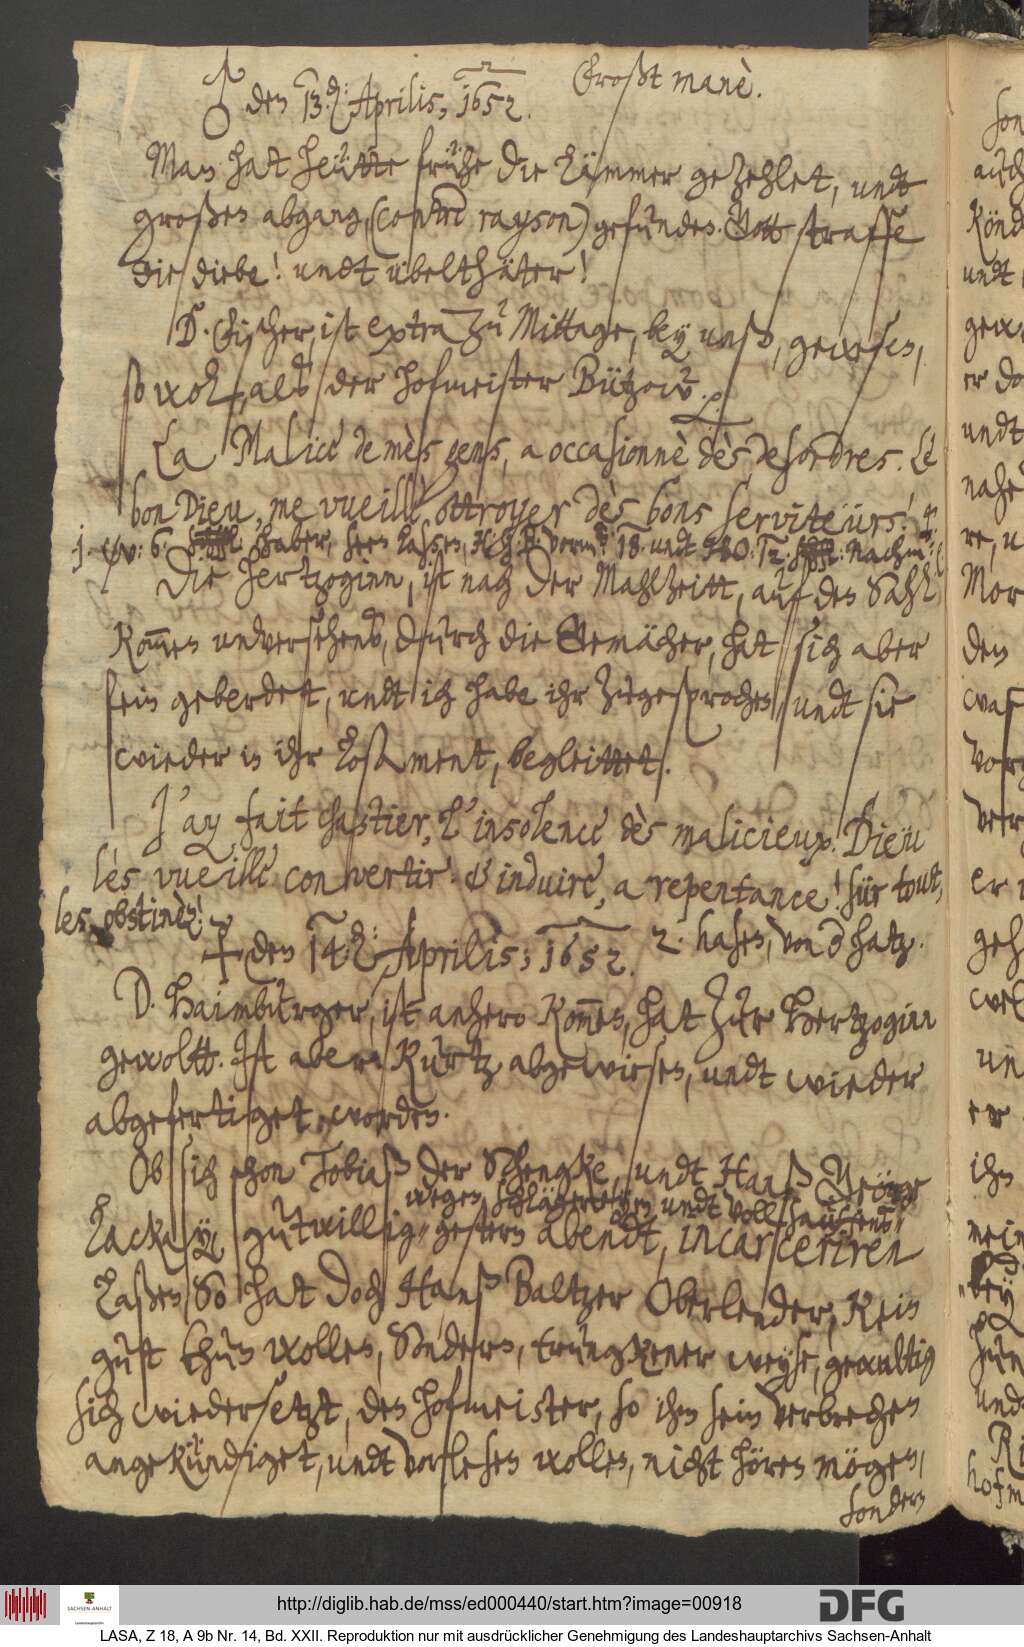 ♂ den 13.d: Aprilis, 1652. Froßt manè.
Man hat heütte frühe die Lämmer gezehlet, undt
großen abgang, (contre rayson) gefunden. Gott straffe
die diebe! undt übelthäter!
D. Fischer, ist extra zu Mittage, bey unß, gewesen,
so wol, alß der hofmeister Bützow.
La Malice de mès gens, a occasionnè dès desordres. Le
bon Dieu, me vueille ottroyer dès bons serviteürs!
haber, seen laßen, 18. undt 12. Nachm:
Die Hertzoginn, ist nach der Mahlzeitt, auf den Sahl
kommen undversehens, durch die Gemächer, hat sich aber
fein geberdett, undt ich habe ihr zugesprochen, undt sie
wieder in ihr Losament, begleittet.
J'ay fait chastier, l'insolence dès malicieux. Dieu
lès vueille convertir. & induire, a repentance! sür tout,
les obstinèz!
☿ den 14.d: Aprilis; 1652. 2. hasen, von d hatz.
D. Haimbürger, ist anhero kommen, hat zur Hertzoginn
gewoltt. Ist aber kurtz abgewiesen, undt wieder
abgefertiget, worden.
Ob sich schon Tobiaß der Schengke, undt Hanß George
wegen schlägereyen undt vollsauffens
Lackay, gutwillig gestern abendt, incarceriren
laßen, So hat doch Hanß Baltzer Oberlender, kein
guht thun wollen, Sondern, trungkener weyse, gewaltig
sich wiedersetzt, den hofmeister, so ihm sein verbrechen
angekündiget, undt vorlesen wollen, nicht hören mögen,
sondern
http://diglib.hab.de/mss/ed000440/start.htm?image=00918
SACHSEN-ANHALT
DFG
LASA, Z 18, A 9b Nr. 14, Bd. XXII. Reproduktion nur mit ausdrücklicher Genehmigung des Landeshauptarchivs Sachsen-Anhalt